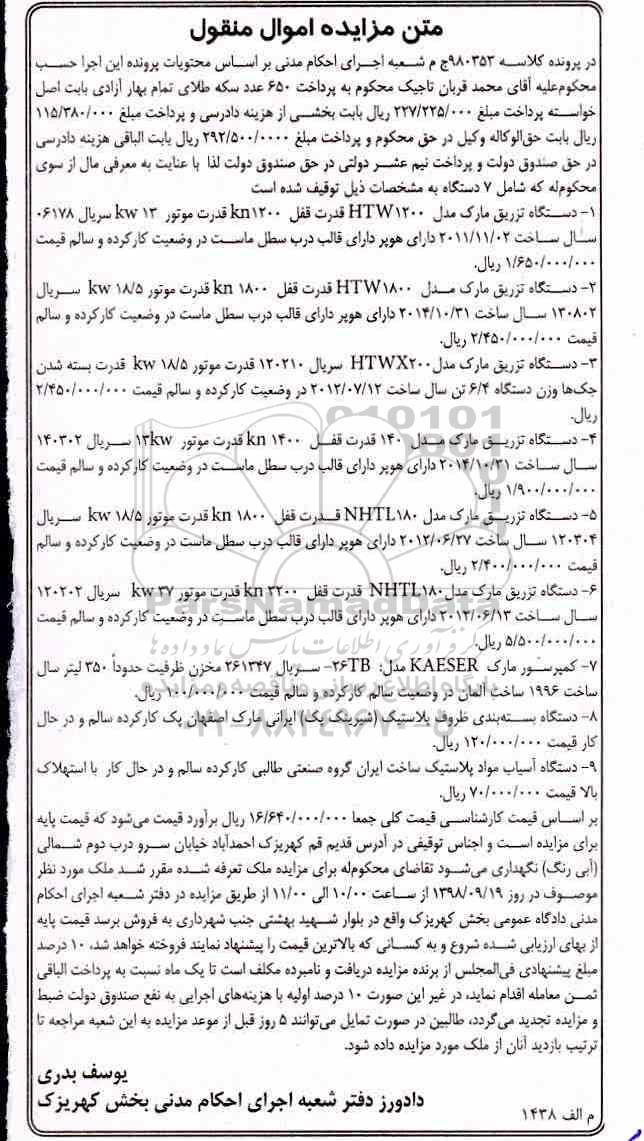 متن مزایده اموال منقول
در پرونده کلاسه ۹۸۰۳۵۳ج م شعبه اجرای احکام مدنی بر اساس محتویات پرونده این اجرا حسب
محکوم‌علیه آقای محمد قربان تاجیک محکوم به پرداخت ۶۵۰ عدد سکه طلای تمام بهار آزادی بابت اصل
خواسته پرداخت مبلغ ۲۲۷/۲۲۵/۰۰۰ ریال بابت بخشی از هزینه دادرسی و پرداخت مبلغ ۱۱۵/۳۸۰/۰۰۰
ریال بابت حق‌الوکاله وکیل در حق محکوم و پرداخت مبلغ ۲۹۲/۵۰۰/۰۰۰۰ ریال بابت الباقی هزینه دادرسی
در حق صندوق دولت و پرداخت نیم عشر دولتی در حق صندوق دولت لذا با عنایت به معرفی مال از سوی
محکوم‌له که شامل ۷ دستگاه به مشخصات ذیل توقیف شده است
۱- دستگاه تزریق مارک مدل HTW۱۲۰۰ قدرت قفل kn۱۲۰۰ قدرت موتور ۱۳ kw سریال ۰۶۱۷۸
سال ساخت ۲۰۱۱/۱۱/۰۲ دارای هوپر دارای قالب درب سطل ماست در وضعیت کارکرده و سالم قیمت
۱/۶۵۰/۰۰۰/۰۰۰ ریال.
۲- دستگاه تزریق مارک مدل HTW۱۸۰۰ قدرت قفل ۱۸۰۰ kn قدرت موتور ۱۸/۵ kw سریال
۱۳۰۸۰۲ سال ساخت ۲۰۱۴/۱۰/۳۱ دارای هوپر دارای قالب درب سطل ماست در وضعیت کارکرده و سالم
قیمت ۲/۴۵۰/۰۰۰/۰۰۰ ریال.
۳- دستگاه تزریق مارک مدل HTWX۲۰۰ سریال ۱۲۰۲۱۰ قدرت موتور ۱۸/۵ kw قدرت بسته شدن
جک‌ها وزن دستگاه ۶/۴ تن سال ساخت ۲۰۱۲/۰۷/۱۲ در وضعیت کارکرده و سالم قیمت ۲/۴۵۰/۰۰۰/۰۰۰
ریال.
۴- دستگاه تزریق مارک مدل ۱۴۰ قدرت قفل ۱۴۰۰ kn قدرت موتور ۱۳kw سریال ۱۴۰۳۰۲
سال ساخت ۲۰۱۴/۱۰/۳۱ دارای هوپر دارای قالب درب سطل ماست در وضعیت کارکرده و سالم قیمت
۱/۹۰۰/۰۰۰/۰۰۰ ریال.
۵- دستگاه تزریق مارک مدل NHTL۱۸۰ قدرت قفل ۱۸۰۰ kn قدرت موتور ۱۸/۵ kw سریال
۱۲۰۳۰۴ سال ساخت ۲۰۱۲/۰۶/۲۷ دارای هوپر دارای قالب درب سطل ماست در وضعیت کارکرده و سالم
قیمت ۲/۴۰۰/۰۰۰/۰۰۰ ریال.
۶- دستگاه تزریق مارک مدل NHTL۱۸۰ قدرت قفل ۳۲۰۰ kn قدرت موتور ۳۷ kw سریال ۱۲۰۲۰۲
سال ساخت ۲۰۱۲/۰۶/۱۳ دارای هوپر دارای قالب درب سطل ماست در وضعیت کارکرده و سالم قیمت
۵/۵۰۰/۰۰۰/۰۰۰ ریال.
۷- کمپرسور مارک KAESER مدل: ۲۶TB- سریال ۲۶۱۳۴۷ مخزن ظرفیت حدوداً ۳۵۰ لیتر سال
ساخت ۱۹۹۶ ساخت آلمان در وضعیت سالم کارکرده و سالم قیمت ۱۰۰/۰۰۰/۰۰۰ ریال.
۸- دستگاه بسته‌بندی ظروف پلاستیک (شیرینگ پک) ایرانی مارک اصفهان پک کارکرده سالم و در حال
کار قیمت ۱۲۰/۰۰۰/۰۰۰ ریال.
۹- دستگاه آسیاب مواد پلاستیک ساخت ایران گروه صنعتی طالبی کارکرده سالم و در حال کار با استهلاک
بالا قیمت ۷۰/۰۰۰/۰۰۰ ریال.
بر اساس قیمت کارشناسی قیمت کلی جمعا ۱۶/۶۴۰/۰۰۰/۰۰۰ ریال برآورد قیمت می‌شود که قیمت پایه
برای مزایده است و اجناس توقیفی در آدرس قدیم قم کهریزک احمدآباد خیابان سرو درب دوم شمالی
(آبی رنگ) نگهداری می‌شود تقاضای محکوم‌له برای مزایده ملک تعرفه شده مقرر شد ملک مورد نظر
موصوف در روز ۱۳۹۸/۰۹/۱۹ از ساعت ۱۰/۰۰ الی ۱۱/۰۰ از طریق مزایده در دفتر شعبه اجرای احکام
مدنی دادگاه عمومی بخش کهریزک واقع در بلوار شهید بهشتی جنب شهرداری به فروش برسد قیمت پایه
از بهای ارزیابی شده شروع و به کسانی که بالاترین قیمت را پیشنهاد نمایند فروخته خواهد شد، ۱۰ درصد
مبلغ پیشنهادی فی‌المجلس از برنده مزایده دریافت و نامبرده مکلف است تا یک ماه نسبت به پرداخت الباقی
ثمن معامله اقدام نماید، در غیر این صورت ۱۰ درصد اولیه با هزینه‌های اجرایی به نفع صندوق دولت ضبط
و مزایده تجدید می‌گردد، طالبین در صورت تمایل می‌توانند ۵ روز قبل از موعد مزایده به این شعبه مراجعه تا
ترتیب بازدید آنان از ملک مورد مزایده داده شود.
یوسف بدری
دادورز دفتر شعبه اجرای احکام مدنی بخش کهریزک
م الف ۱۴۳۸
ParsNamadData